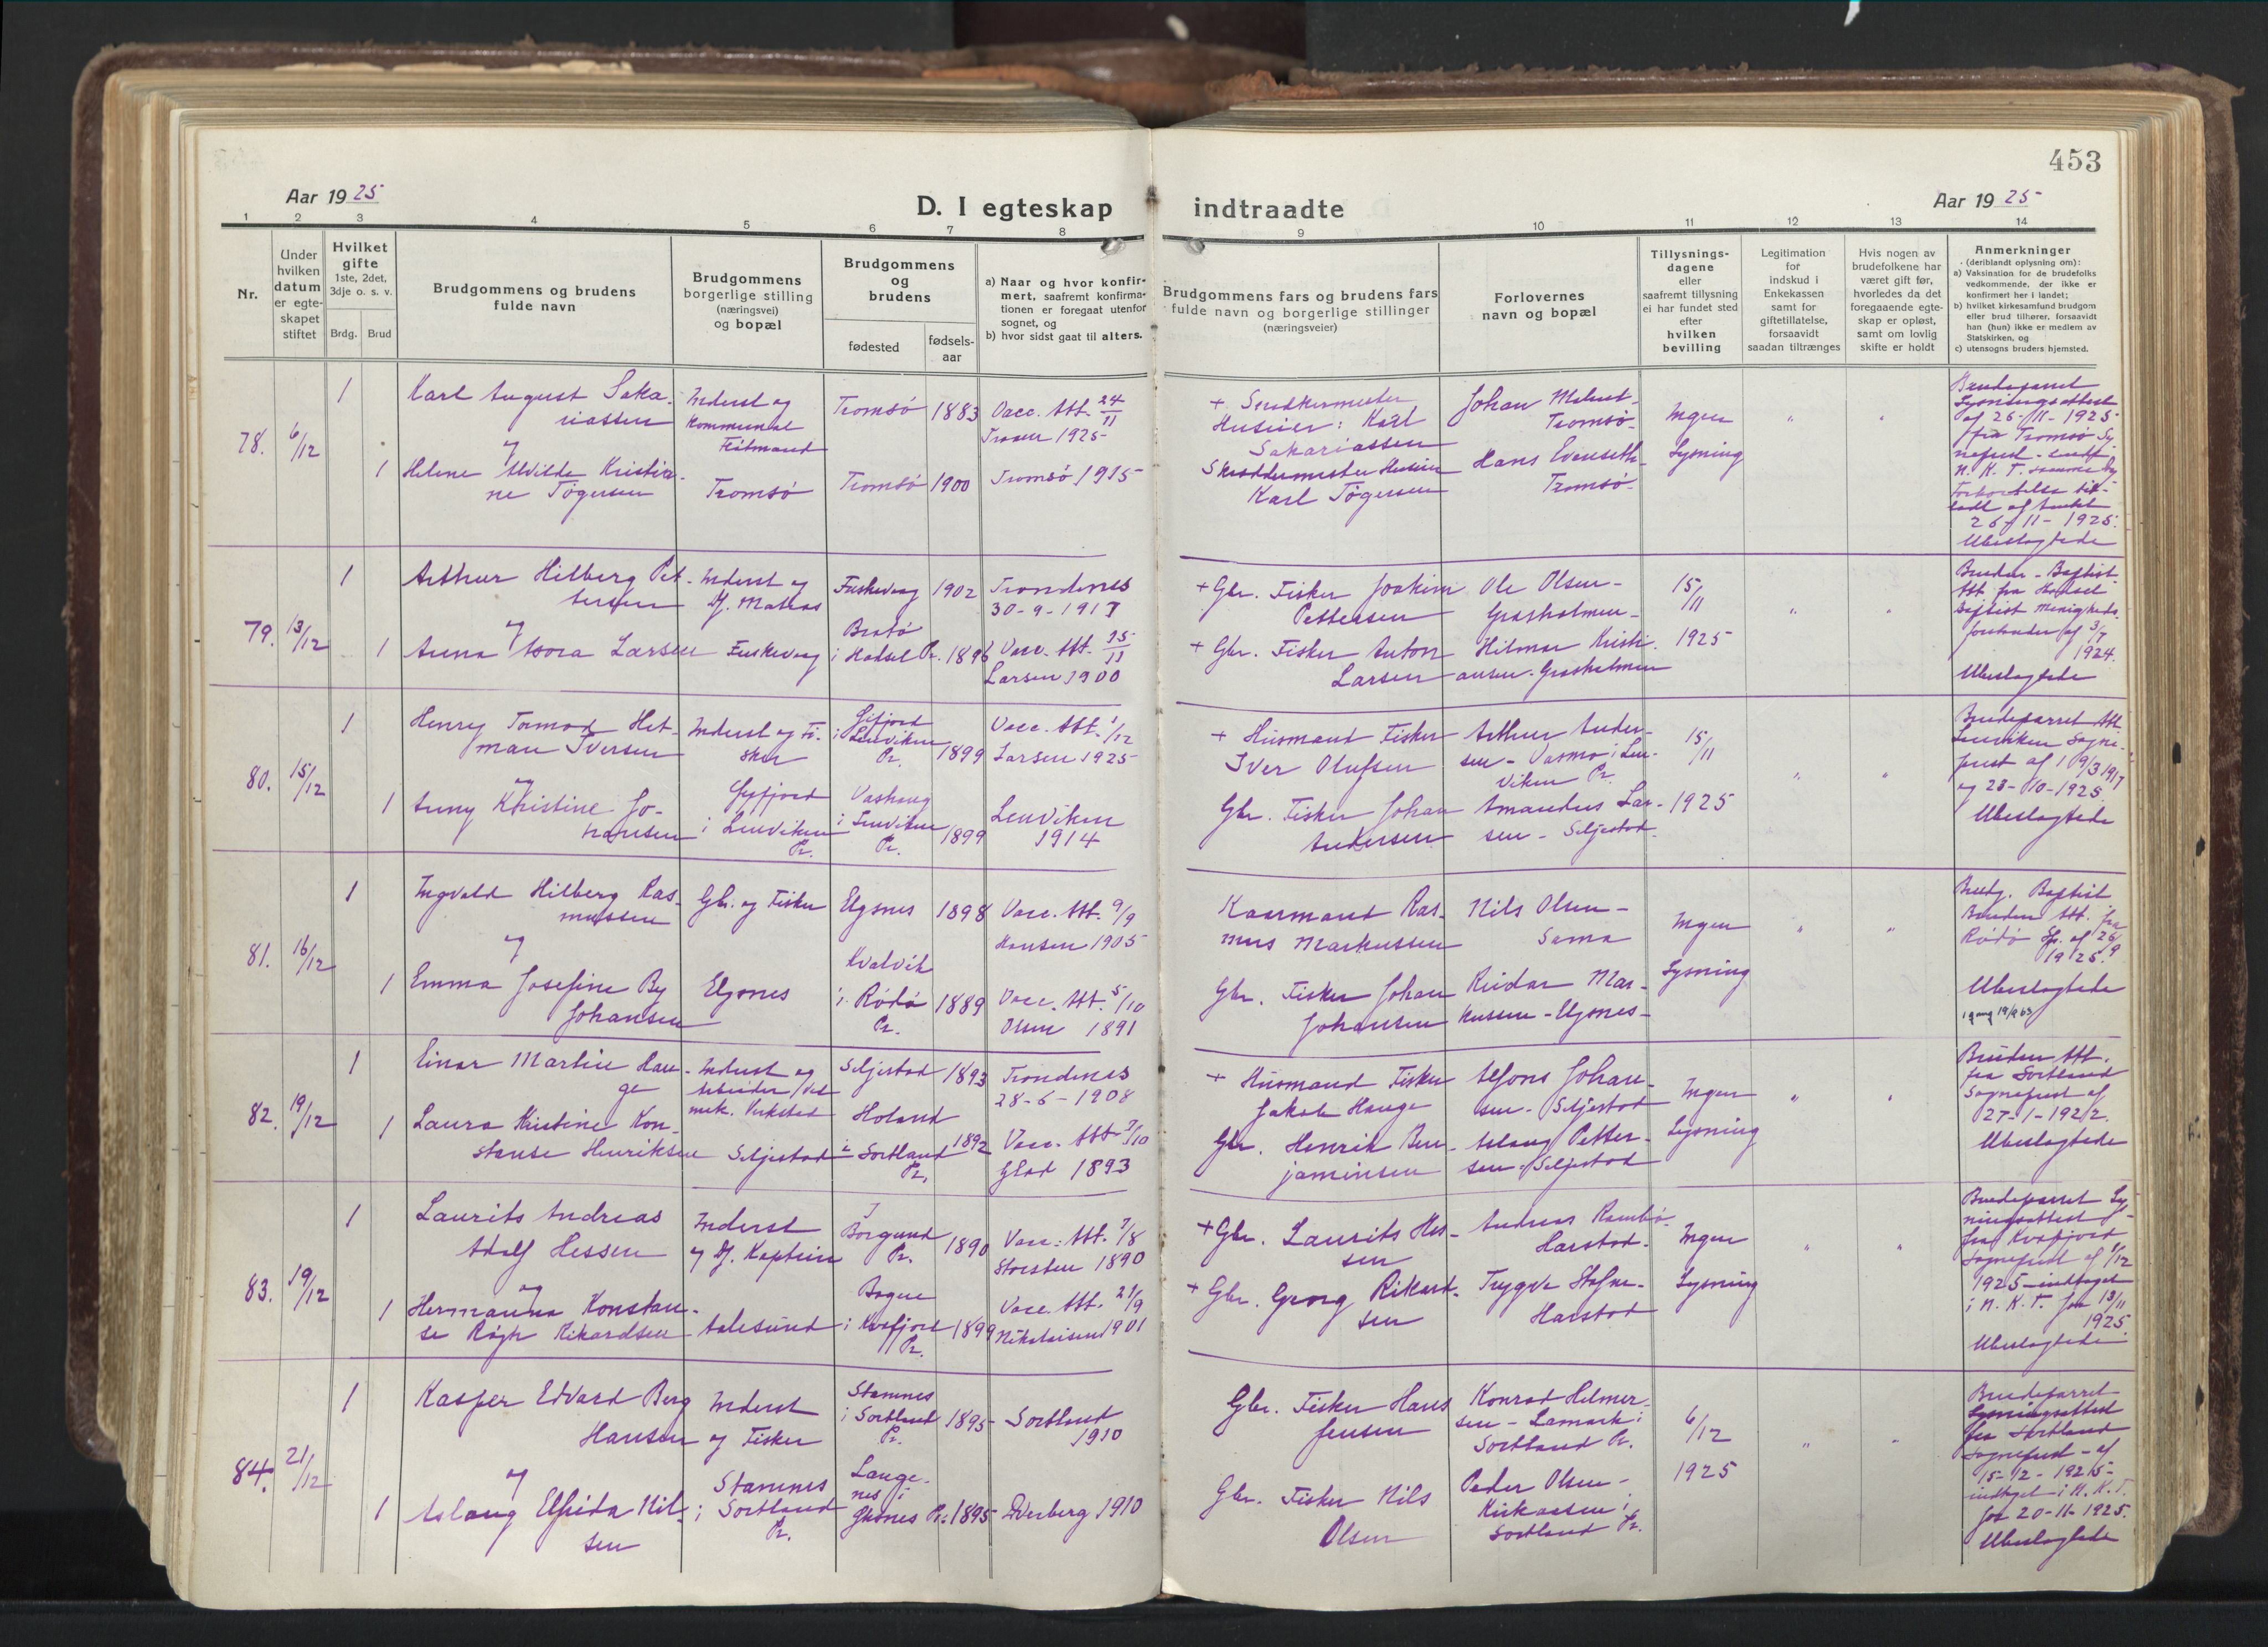 453
Aar 1925
D. I egteskap indtraadte
Aar 1925
1 2 3 4 5 6 7 8 9 10 11 12 13 14
Nr.
Under hvilken datum er egteskapet stiftet
Hvilket gifte
1ste, 2det, 3dje o. s. v.
Brdg. Brud
Brudgommens og brudens fulde navn
Brudgommens borgerlige stilling (næringsvei) og bopæl
Brudgommens og brudens
fødested
fødsels-aar
a) Naar og hvor konfirmert, saafremt konfirmationen er foregaat utenfor sognet, og
b) hvor sidst gaat til alters.
Brudgommens fars og brudens fars fulde navn og borgerlige stillinger (næringsveier)
Forlovernes navn og bopæl
Tillysningsdagene eller saafremt tillysning ei har fundet sted efter hvilken bevilling
Legitimation for indskud i Enkekassen samt for giftetillatelse, forsaavidt saadan tiltrænges
Hvis nogen av brudefolkene har været gift før, hvorledes da det foregaaende egteskap er opløst, samt om lovlig skifte er holdt
Anmerkninger
(deriblandt oplysning om):
a) Vaksination for de brudefolks vedkommende, der ikke er konfirmert her i landet;
b) hvilket kirkesamfund brudgom eller brud tilhører, forsaavidt han (hun) ikke er medlem av Statskirken, og
c) utensogns bruders hjemsted.
78. 6/12
1 Karl August Saka-
riassen
og
1 Helene Alvilde Kristia-
ne Tøgersen
Inderst og
Kommunal
Tromsø
Tromsø 1883
Tromsø 1900
Vacc. Att. 24/11
1925
Tromsø 1915
+ Snedkermester
Huseier: Karl
Sakariassen
Skræddermester Huseier
Karl Tøgersen
Johan
Tromsø
Hans Evenseth
Tromsø
Ingen
Lysning
Brudeparret
Lysningsattest
af 26-11-1925
fra Tromsø Sog-
neprest
26/11-1925
Ubeslagtede
79. 13/12
1 Arthur Hilberg Pet-
tersen
og
1 Anna Asora Larsen
Inderst og
Dj. Matros
Fuskevaag
Fuskevaag 1902
i Hadsel Pr. 1896
Trondenes
30-9-1917
Vacc. Att. 15/11
Larsen 1900
+ Gbr. Fisker Joakim
Pettersen
+ Gbr. Fisker Anton
Larsen
Ole Olsen -
Grasholmen
Hilmar Kristi-
ansen - Grasholmen
15/11
1925
Bruden - Baptist
Att. fra Hadsel
Baptist Menigheds
forstander af 3/7
1924.
Ubeslagtede
80. 15/12
1 Henry Tormod Het-
man Iversen
og
1 Anny Kristine Jo-
hansen
Inderst og Fi-
sker
Gifjord
i Lenviken
Pr.
Gifjord
i Lenviken
Pr. 1899
Vashaug
i Lenviken
Pr. 1899
Vacc. Att. 1/12
Larsen 1925
Lenviken
1914
+ Husmand Fisker
Iver Olufsen
Gbr. Fisker Johan
Andersen
Arthur Ander-
sen - Vasmo i Len-
viken Pr.
Amandus Lar-
sen - Seljestad
15/11
1925
Brudeparret Att.
Lenviken Sogne-
prest af 19/3 1917
og 28-10-1925
Ubeslagtede
81. 16/12
1 Ingvald Hilberg Ras-
mussen
og
1 Emma Josefine By
Johansen
Gbr. og Fisker
Elgsnes
Elgsnes 1898
Kvalvik
i Rødø
Pr. 1889
Vacc. Att. 9/9
Hansen 1905
Vacc. Att. 5/10
Olsen 1891
Kaarmand Ras-
mus Markussen
Gbr. Fisker Johan
Johansen
Nils Olsen -
Sama
Reidar Mar-
kussen - Elgsnes -
Ingen
Lysning
Brudg. Baptist
Bruden Att. fra
Rødø Sp. af 26/9
1925.
Ubeslagtede
82. 19/12
1 Einar Martin Hau-
ge
1 Laura Kristine Kon-
stanse Henriksen
Inderst og
Arbeider ved
mek. Verksted
Seljestad
Seljestad 1893
Holand
i Sortland 1892
Pr.
Trondenes
28-6-1908
Vacc. Att. 7/10
Glad 1893
+ Husmand Fisker
Jakob Hauge
Gbr. Henrik Ben-
jaminsen
Alfons Johan-
sen - Seljestad
Aslaug Petter-
sen - Seljestad
Ingen
Lysning
Bruden Att.
fra Sortland
Sogneprest af
27-1-1922.
Ubeslagtede
83. 19/12
1 Laurits Andreas
Adolf Hessen
og
1 Hermanna Konstan-
se Røgh Rikardsen
Inderst
og Dj. Kaptein
Aalesund
I
Borgund
Pr. 1890
i Kvæfjord
Pr. 1899
Vacc. Att. 7/8
1890
Vacc. Att. 21/9
Nikolaisen 1901
+ Gbr. Laurits Hes-
sen
+ Gbr. Georg Rikard-
sen
Andreas Rambø
Harstad
Trygve
Harstad
Ingen
Lysning
Brudeparret Ly-
sningsattest
fra Kvæfjord
Sogneprest af 1/12
1925 - indtaget
i N. K. T. for 13/11
1925
Ubeslagtede
84. 21/12
1 Kasper Edvard Berg
Hansen
og
1 Aslaug Elfrida Nil-
sen
Inderst
og Fisker
Stamnes
i Sortland
Pr.
Stamnes
i Sortland
Pr. 1895
Lange-
nes i
Øksnes Pr. 1895
Sortland
1910
Dverberg 1910
Gbr. Fisker Hans
Jensen
Gbr. Fisker Nils
Olsen
Konrad Helmer-
sen - Lamark i
Sortland Pr.
Peder Olsen -
Kirkaasen i
Sortland Pr.
6/12
1925
Brudeparret
Lysningsattest
fra Sortland
Sogneprest - af
15-12-1925
indtaget i N. K. T.
for 20-11-1925.
Ubeslagtede